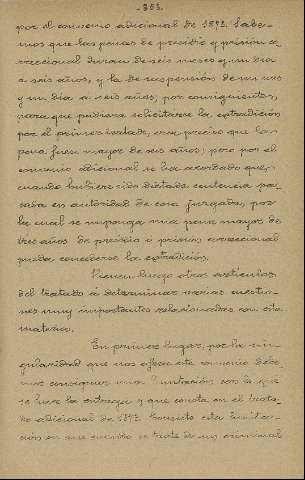 -303-
por el convenio adicional de 1892. Sabe-
mos que las penas de presidio y prisión co-
rreccional duran de seis meses y un dia
a seis años, y la de suspensión de un mes
y un dia a seis años; por consiguiente,
para que pudiera solicitarse la extradición
por el primer tratado, era preciso que la
pena fuera mayor de seis años; pero por el
convenio adicional se ha acordado que,
cuando hubiere sido dictada sentencia pa-
sada en autoridad de cosa juzgada, por
la cual se imponga una pena mayor de
tres años de presidio o prisión correccional
pueda concederse la extradición.
Vienen luego otros artículos
del tratado á determinar varias cuestio-
nes muy importantes relacionadas con esta
materia.
En primer lugar, por la sin-
gularidad que nos ofrece este convenio debe-
mos consignar una limitación con la que
se hace la entrega y que consta en el trata-
do adicional de 1892. Consiste esta limita-
ción en que cuando se trate de un criminal